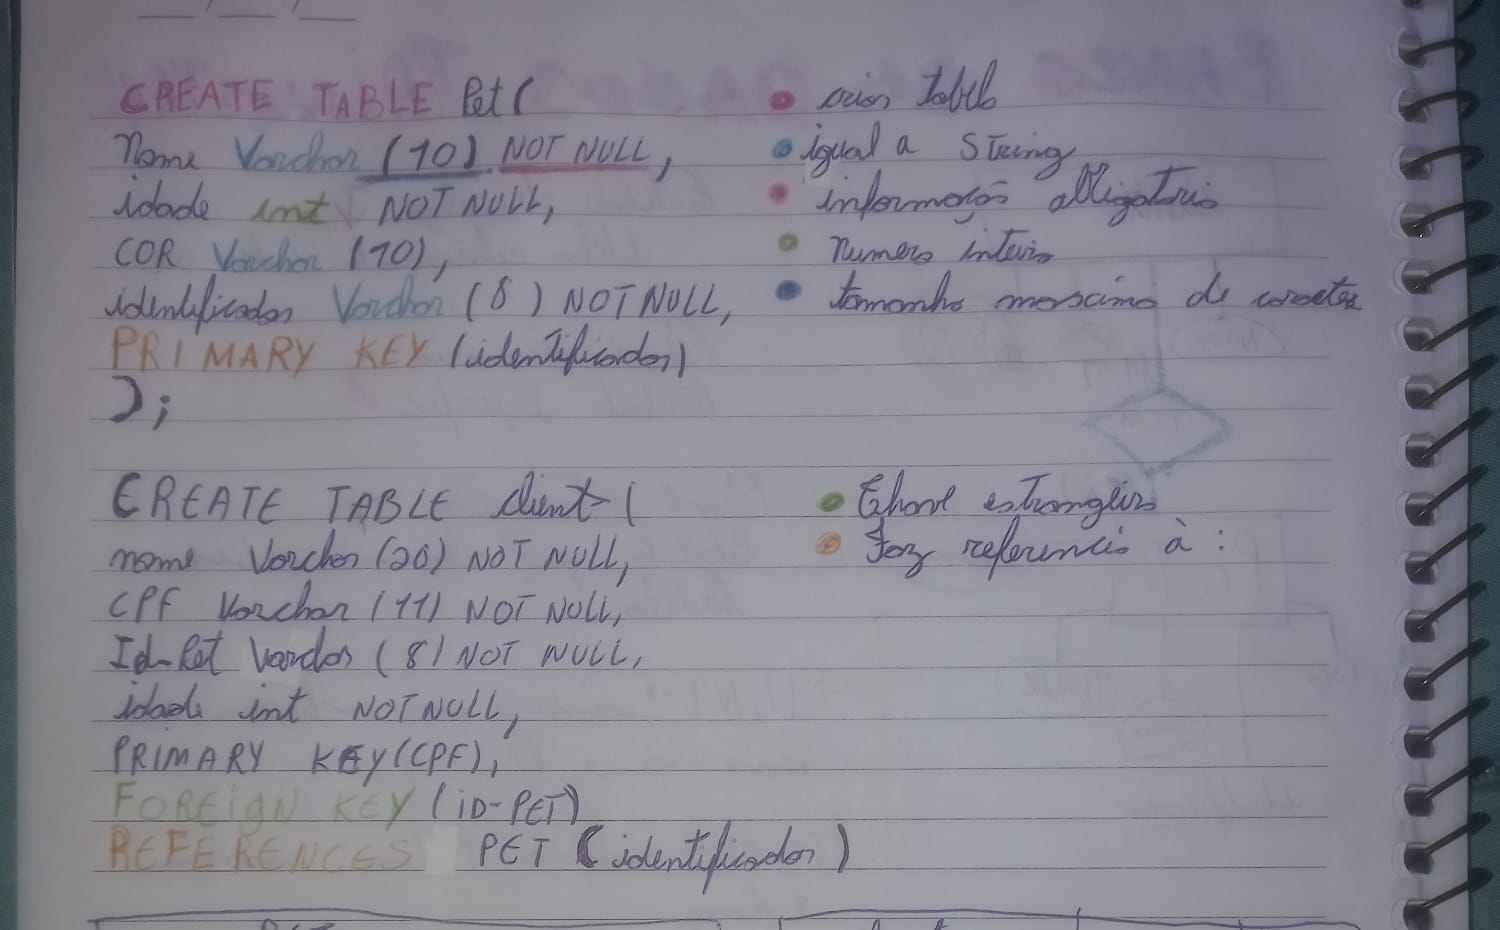 CREATE TABLE Pet (
nome Varchar (10) NOT NULL,
idade int NOT NULL,
COR Varchar (10),
identificador Varchar (8) NOT NULL,
PRIMARY KEY (identificador)
);
criar tabela
igual a String
informação obrigatoria
Numero inteiro
tamanho mascimo de
CREATE TABLE client (
nome Varchar (20) NOT NULL,
CPF Varchar (11) NOT NULL,
Id-Pet Varchar (8) NOT NULL,
idade int NOT NULL,
PRIMARY KEY (CPF),
FOREIGN KEY (iD-PET)
REFERENCES PET (identificador)
Chave estrangeira
Faz referencia à :